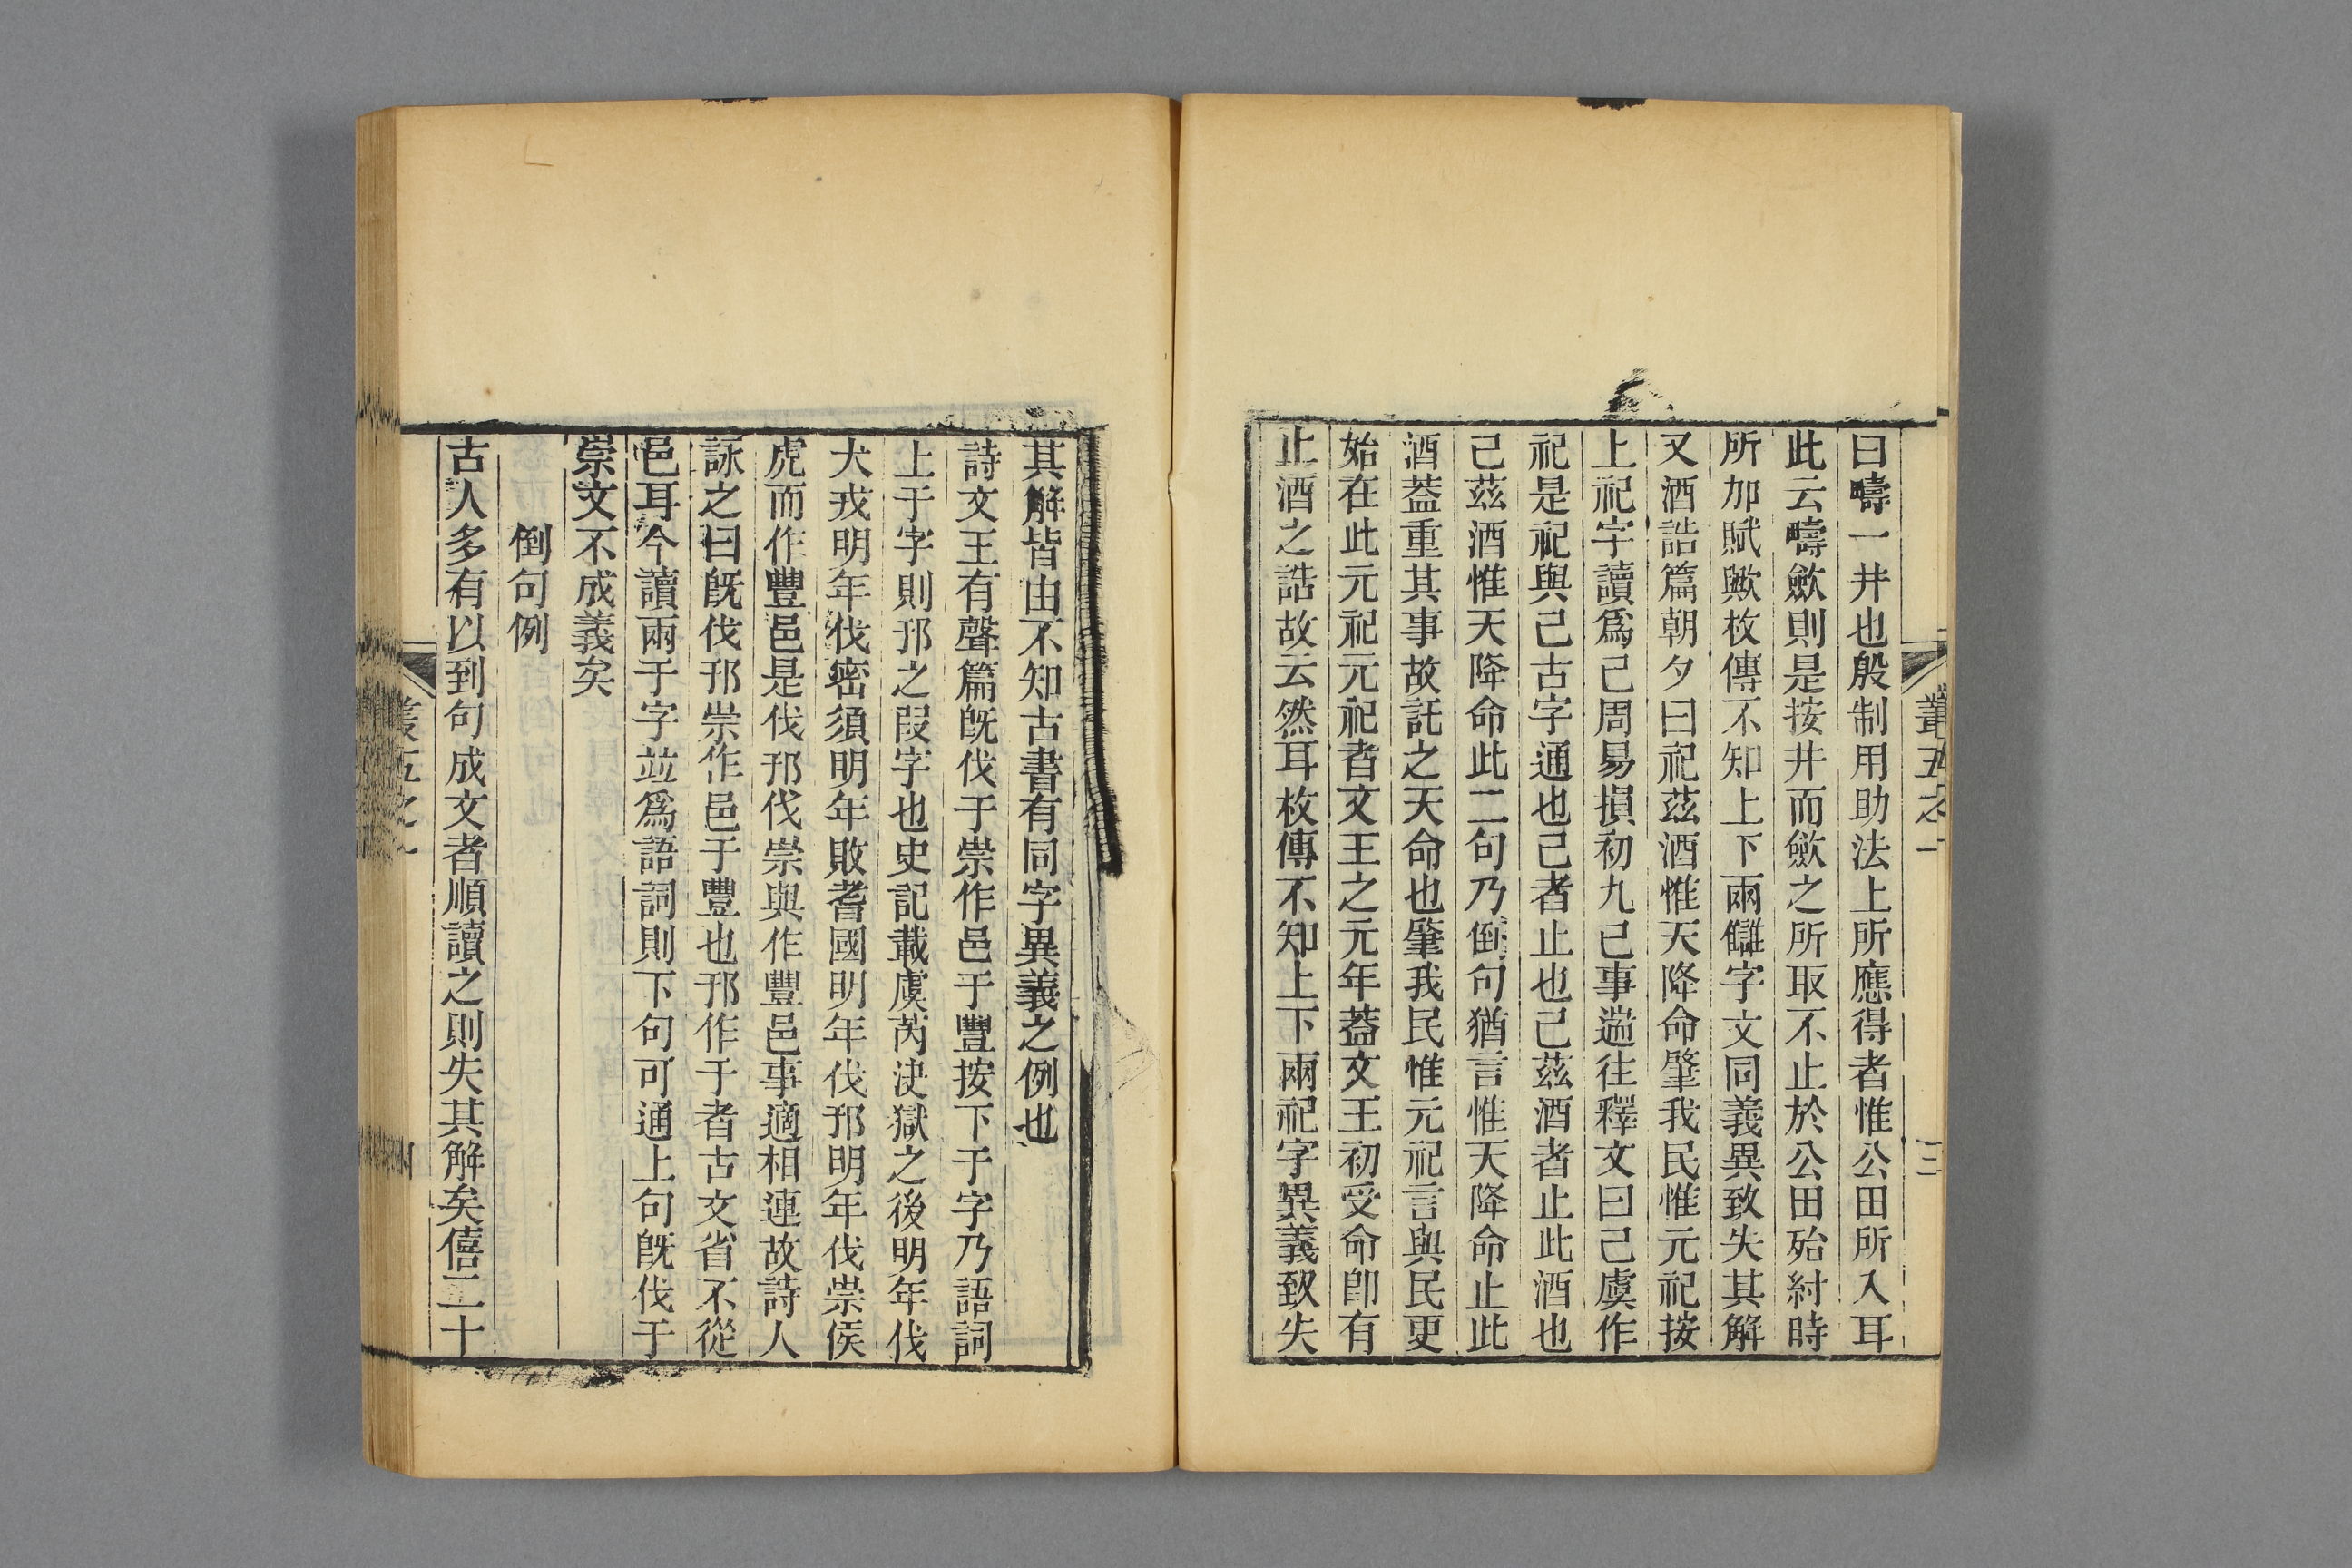 曰疇一井也殷制用助法上所應得者惟公田所入耳
此云疇斂則是按井而斂之所取不止於公田殆紂時
所加賦歟枚傳不知上下兩讎字文同義異致失其解
又酒誥篇朝夕曰祀茲酒惟天降命肇我民惟元祀按
上祀字讀爲已周易損初九已事遄往釋文曰已虞作
祀是祀與已古字通也已者止也已茲酒者止此酒也
已茲酒惟天降命此二句乃倒句猶言惟天降命止此
酒葢重其事故託之天命也肇我民惟元祀言與民更
始在此元祀元祀者文王之元年葢文王初受命卽有
止酒之誥故云然耳枚傳不知上下兩祀字異義致失
叢五之一
三
其解皆由不知古書有同字異義之例也
詩文王有聲篇旣伐于崇作邑于豐按下于字乃語詞
上于字則邘之叚字也史記載虞芮決獄之後明年伐
犬戎明年伐密須明年敗耆國明年伐邘明年伐崇侯
虎而作豐邑是伐邘伐崇與作豐邑事適相連故詩人
詠之曰旣伐邘崇作邑于豐也邘作于者古文省不從
邑耳今讀兩于字竝爲語詞則下句可通上句旣伐于
崇文不成義矣
倒句例
古人多有以到句成文者順讀之則失其解矣僖二十
叢五之一